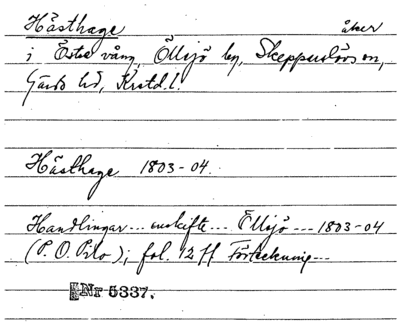 Hästhage åker
i Östra vång, Öllsjö by, Skepparslövs sn,
Gärds hd, Krstd. l.
Hästhage 1803-04.
Handlingar... enskifte... Öllsjö --- 1803-04
(P. O. Pilo); fol. 12 ff Förteckning---
Nr 5337.